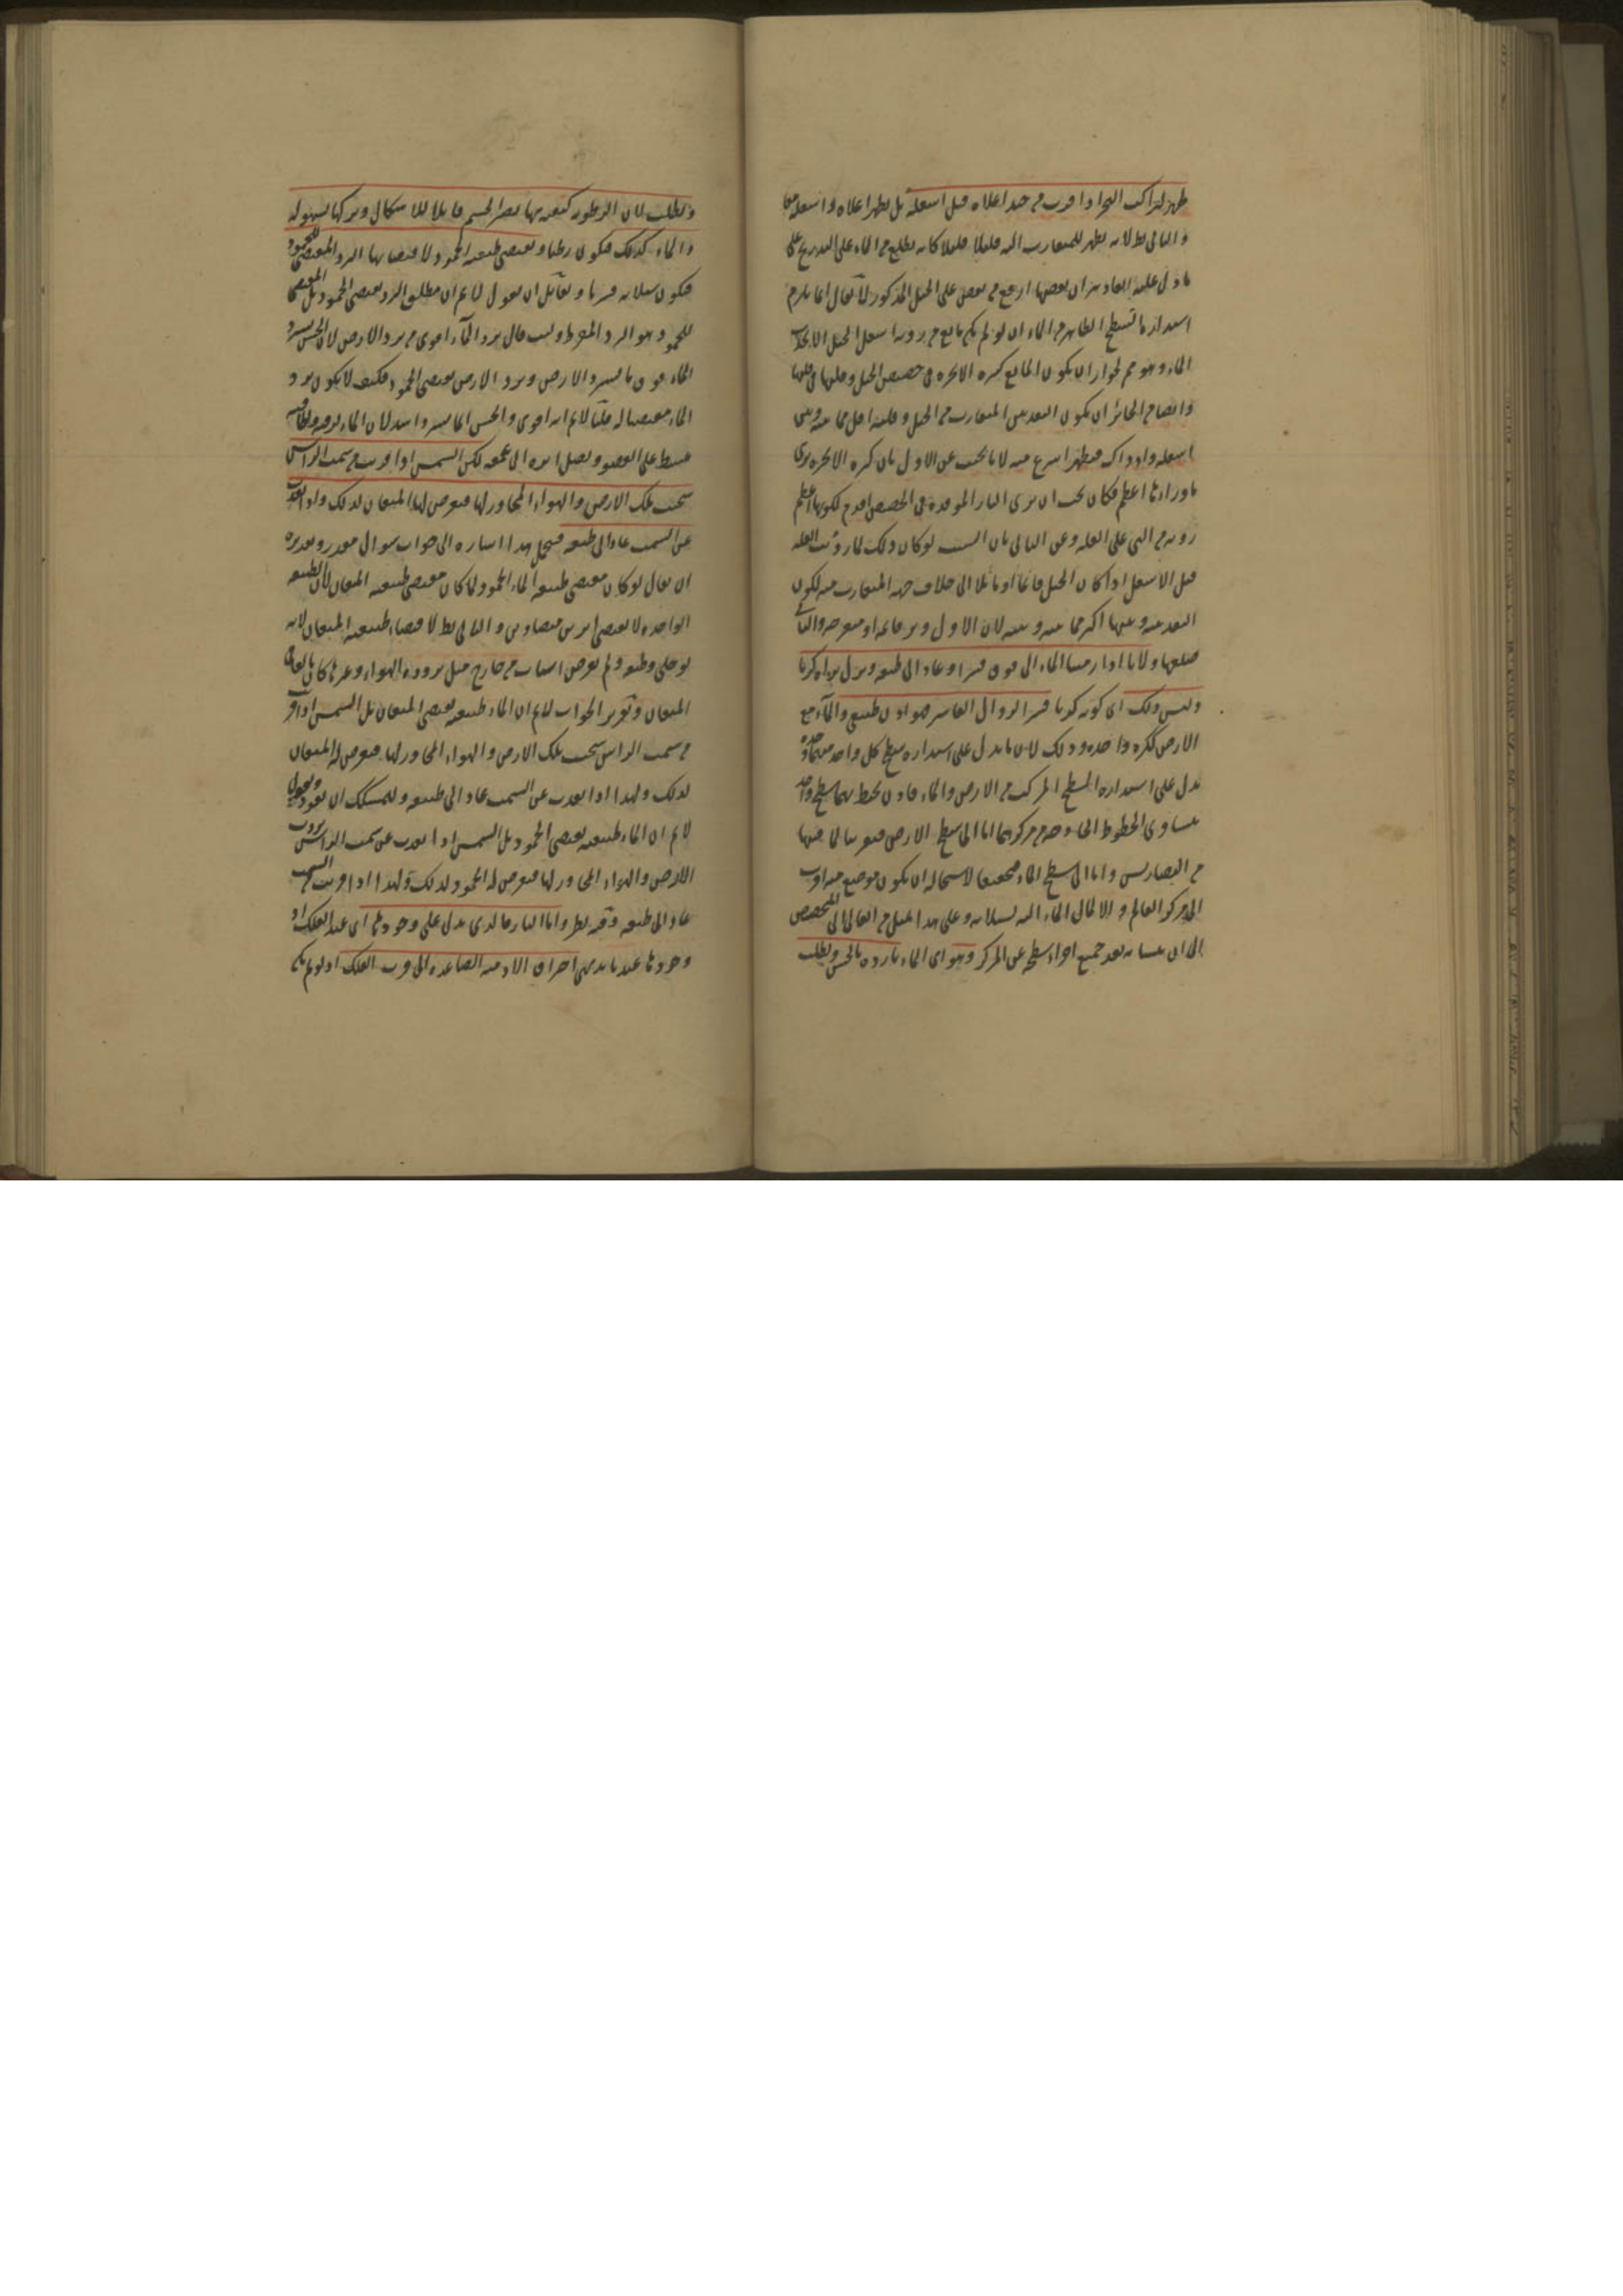 ظهر لراكب البحر اذا قرب من جبل اعلاه قبل اسفله بل يظهر اعلاه واسفله معا
والتالي بط لانه يظهر للمتقارب اليه قليلا قليلا كانه يطلع من الماء على التدريج على
ما دل عليه ان بعضها ارفع من بعض على الجبل المذكور لا يقال انما يلزم
استدارة السطح الظاهر من الماء ان لو لم يكن مانع من رؤية اسفل الجبل الا تحدب
الماء وهو مم لجواز ان يكون المانع كثرة الابخرة في حضيض الجبل وقلتها في قلتها
وايضا من الجائز ان يكون البعد بين المتقارب من الجبل وقلته اقل مما بينه وبين
اسفله واذ ذاك فيظهر اسرع منه لانا نجيب عن الاول بان كثرة الابخرة يرى
ما وراءها اعظم فكان يجب ان يرى النار الموقدة في الحضيض اقدم لكونها اعظم
رؤية من التي على القلة وعن الثاني بان السبب لو كان ذلك لما رؤيت القلة
قبل الاسفل اذا كان الجبل قائما او مائلا الى خلاف جهة المتقارب منه لكون
البعد بينه وبينها اكثر مما بينه وبينه لان الاول وتر قائمة او منفرجة والثاني
ضلعها ولانا اذا رمينا الماء الى فوق قسرا وعاد الى طبعه ونزل نراه كريا
وليس ذلك اى كونه كريا قسرا لزوال القاسر فهو اذن طبيعي والماء مع
الارض ككرة واحدة وذلك لان ما يدل على استدارة سطح كل واحد منهما وحده
يدل على استدارة السطح المركب من الارض والماء فاذن يحيط بهما سطح واحد
يتساوى الخطوط الخارجة من مركزهما اما الى سطح الارض فتقريبا لما فيها
من التضاريس واما الى سطح الماء فتحقيقا لاستحالة ان يكون موضع منه اقرب
الى مركز العالم والا لمال الماء اليه لسيلانه وعلى هذا الميل من العالي الى المنخفض
الى ان يتشابه بعد جميع اجزاء سطحه عن المركز وهو اى الماء بارد بالحس ورطب
ورطب لان الرطوبة كيفية بها يصير الجسم قابلا للاشكال وتركها بسهولة
والماء كذلك فيكون رطبا ويقتضى طبعه الجمود لاقتضائها البرد المقتضى للجمود
فيكون سيلانه قسريا ولقائل ان يقول لا نم ان مطلق البرد يقتضى الجمود بل المقتضى
للجمود هو البرد المفرط وليت قال برد الماء اقوى من برد الارض لان الحس يستبرد
الماء فوق ما يستبرد الارض وبرد الارض يقتضى الجمود فكيف لا يكون برد
الماء مقتضيا له قلنا لا نم انه اقوى والحس انما يستبرده اشد لان الماء لرقته ولطافته
ينبسط على العضو ويصل اثره الى عمقه لكن الشمس اذا قربت من سمت الراس
سخنت تلك الارض والهواء المجاور لها فيعرض لها الميعان لذلك واذا بعدت
عن السمت عاد الى طبعه فيجمد هذا اشارة الى جواب سؤال مقدر وتقديره
ان يقال لو كان مقتضى طبيعة الماء الجمود لما كان مقتضى طبيعته الميعان لان الطبيعة
الواحدة لا يقتضى امرين متضادين والتالي بط لاقتضاء طبيعته الميعان لانه
لو خلى وطبعه ولم يعرض اسباب من خارج مثل برودة الهواء وغيرها كان بالغا في
الميعان وتقرير الجواب لا نم ان الماء طبيعته يقتضى الميعان بل الشمس اذا قربت
من سمت الراس سخنت تلك الارض والهواء المجاور لها فيعرض له الميعان
لذلك ولهذا اذا بعدت عن السمت عاد الى طبعه وللمشكك ان يعود ويقول
لا نم ان الماء طبيعته يقتضى الجمود بل الشمس اذا بعدت عن سمت الراس بردت
الارض والهواء المجاور لها فيعرض له الجمود لذلك ولهذا اذا قربت من السمت
عاد الى طبعه وفيه نظر واما النار فالذى يدل على وجودها اى عند الفلك اذ
وجودها عندنا بديهى احتراق الادخنة الصاعدة الى قرب الفلك اذ لو لم يكن